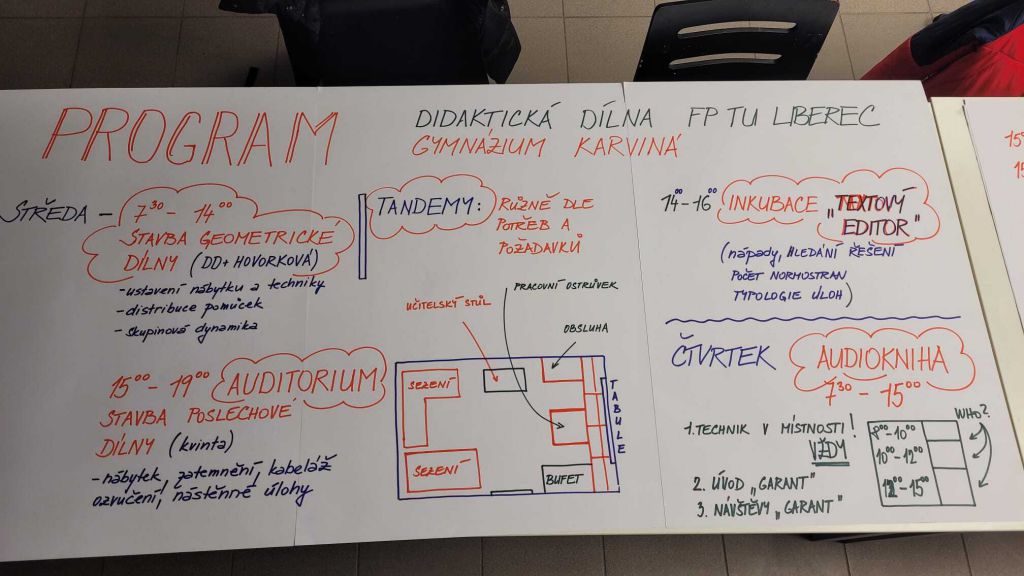 PROGRAM
DIDAKTICKÁ DÍLNA FP TU LIBEREC
GYMNÁZIUM KARVINÁ
STŘEDA – 7³⁰ – 14⁰⁰
STAVBA GEOMETRICKÉ
DÍLNY (DD + HOVORKOVÁ)
- ustavení nábytku a techniky
- distribuce pomůcek
- skupinová dynamika
15⁰⁰ – 19⁰⁰ AUDITORIUM
STAVBA POSLECHOVÉ
DÍLNY (kvinta)
- nábytek, zatemnění, kabeláž
ozvučení, nástěnné úlohy
TANDEMY: RŮZNĚ DLE
POTŘEB A
POŽADAVKŮ
PRACOVNÍ OSTRŮVEK
UČITELSKÝ STŮL
OBSLUHA
SEZENÍ
TABULE
SEZENÍ
BUFET
14⁰⁰ – 16⁰⁰ INKUBACE „TEXTOVÝ
EDITOR"
(nápady, HLEDÁNÍ ŘEŠENÍ
POČET NORMOSTRAN
TYPOLOGIE ÚLOH)
ČTVRTEK AUDIOKNIHA
7³⁰ – 15⁰⁰
1. TECHNIK V MÍSTNOSTI!
VŽDY
2. ÚVOD „GARANT"
3. NÁVŠTĚVY „GARANT"
WHO?
8⁰⁰ – 10⁰⁰
10⁰⁰ – 12⁰⁰
12⁰⁰ – 15⁰⁰